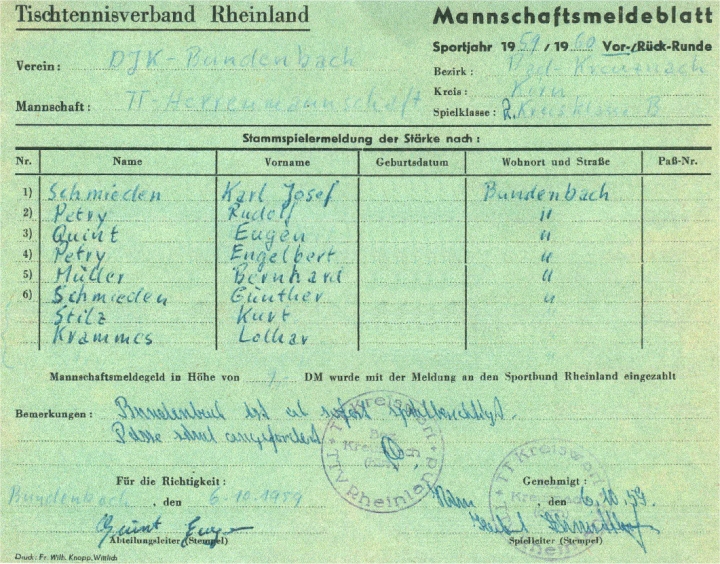 Tischtennisverband Rheinland
Mannschaftsmeldeblatt
Sportjahr 1959/1960 Vor-/Rück-Runde
Verein: DJK-Bundenbach
Bezirk: Bad-Kreuznach
Kreis: Kirn
Mannschaft: TT-Herrenmannschaft
Spielklasse: R. Kreisklasse B
Stammspielermeldung der Stärke nach:
Nr. Name Vorname Geburtsdatum Wohnort und Straße Paß-Nr.
1) Schmieden Karl Josef Bundenbach
2) Petry Rudolf "
3) Quint Eugen "
4) Petry Engelbert "
5) Müller Bernhard "
6) Schmieden Günther "
Stilz Kurt
Krammes Lothar
Mannschaftsmeldegeld in Höhe von DM wurde mit der Meldung an den Sportbund Rheinland eingezahlt
Bemerkungen: Bundenbach ist ab sofort spielberechtigt.
Pässe sind angefordert
TT Kreiswart
TTV Rheinland
Für die Richtigkeit:
Genehmigt:
Bundenbach, den 6.10.1959
Kirn, den 6.10.59.
Quint Eugen
Abteilungsleiter (Stempel)
Spielleiter (Stempel)
Druck: Fr. Wilh. Knopp, Wittlich